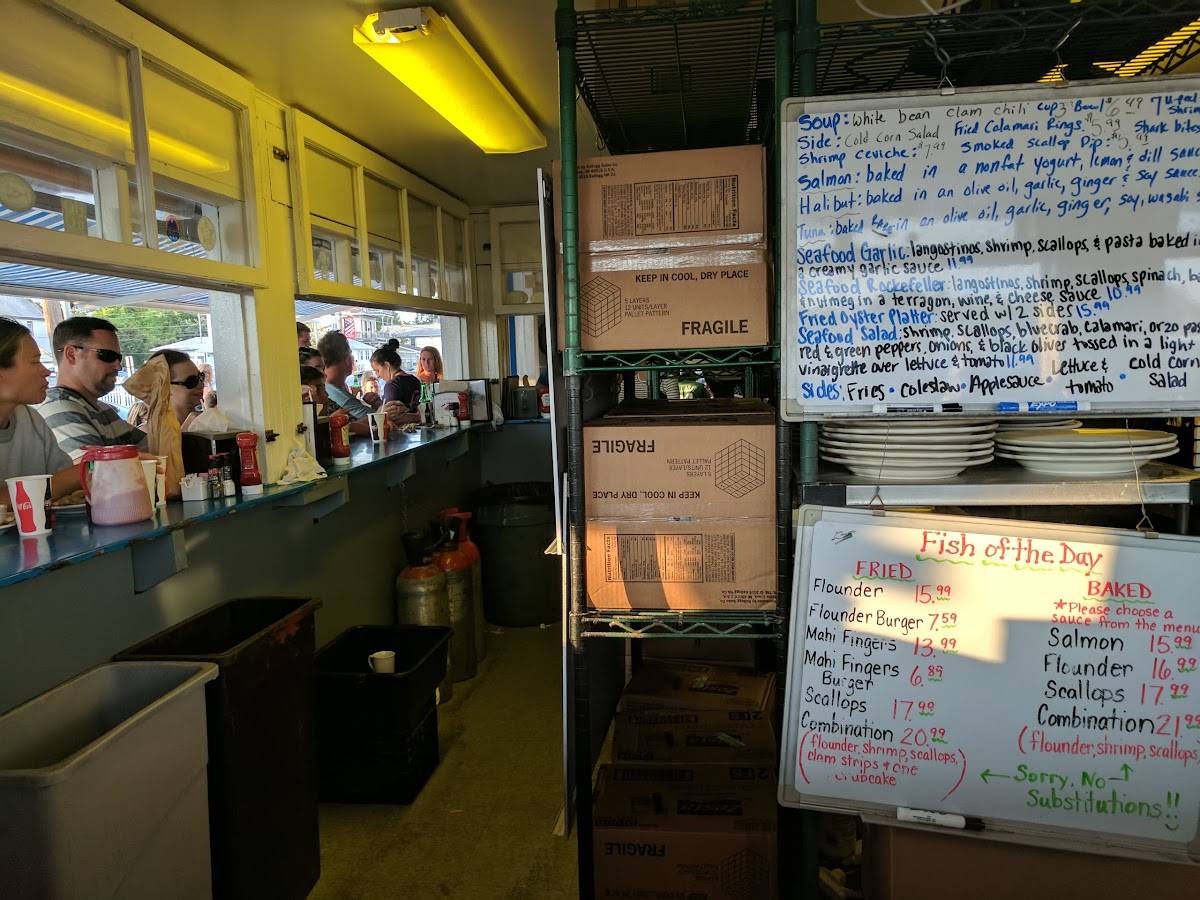 Soup: White bean clam chili cup 3 Bowl $6.49
Side: Cold Corn Salad Fried Calamari Rings $5.99
Shrimp Ceviche: $7.99 Smoked Scallop Dip: $5.49 Shark bites
Salmon: baked in a nonfat yogurt, lemon & dill sauce
Halibut: baked in an olive oil, garlic, ginger & soy sauce
Tuna: baked in an olive oil, garlic, ginger, soy, wasabi
Seafood Garlic: langostinos, shrimp, scallops, & pasta baked in
a creamy garlic sauce 11.99
Seafood Rockefeller: langostinos, shrimp, scallops, spinach, ba
& nutmeg in a terragon, wine, & cheese sauce 10.99
Fried Oyster Platter: served w/ 2 sides 15.99
Seafood Salad: shrimp, scallops, bluecrab, calamari, orzo pa
red & green peppers, onions, & black olives tossed in a light
vinaigrette over lettuce & tomato 11.99
Sides: Fries • Coleslaw • Applesauce • Lettuce & tomato • cold corn Salad
EXPO
Fish of the Day
FRIED
Flounder 15.99
Flounder Burger 7.59
Mahi Fingers 13.99
Mahi Fingers 6.89
Burger
Scallops 17.99
Combination 20.99
(flounder, shrimp, scallops,
clam strips & one
crabcake)
BAKED
*Please choose a
sauce from the menu
Salmon 15.99
Flounder 16.99
Scallops 17.99
Combination 21.99
(flounder, shrimp, scallops,
← Sorry, No →
Substitutions!!
Nutrition Facts
KEEP IN COOL, DRY PLACE
5 LAYERS
12 UNITS/LAYER
PALLET PATTERN
FRAGILE
FRAGILE
5 LAYERS
12 UNITS/LAYER
PALLET PATTERN
KEEP IN COOL, DRY PLACE
Nutrition Facts
FRAGILE
Coca-Cola